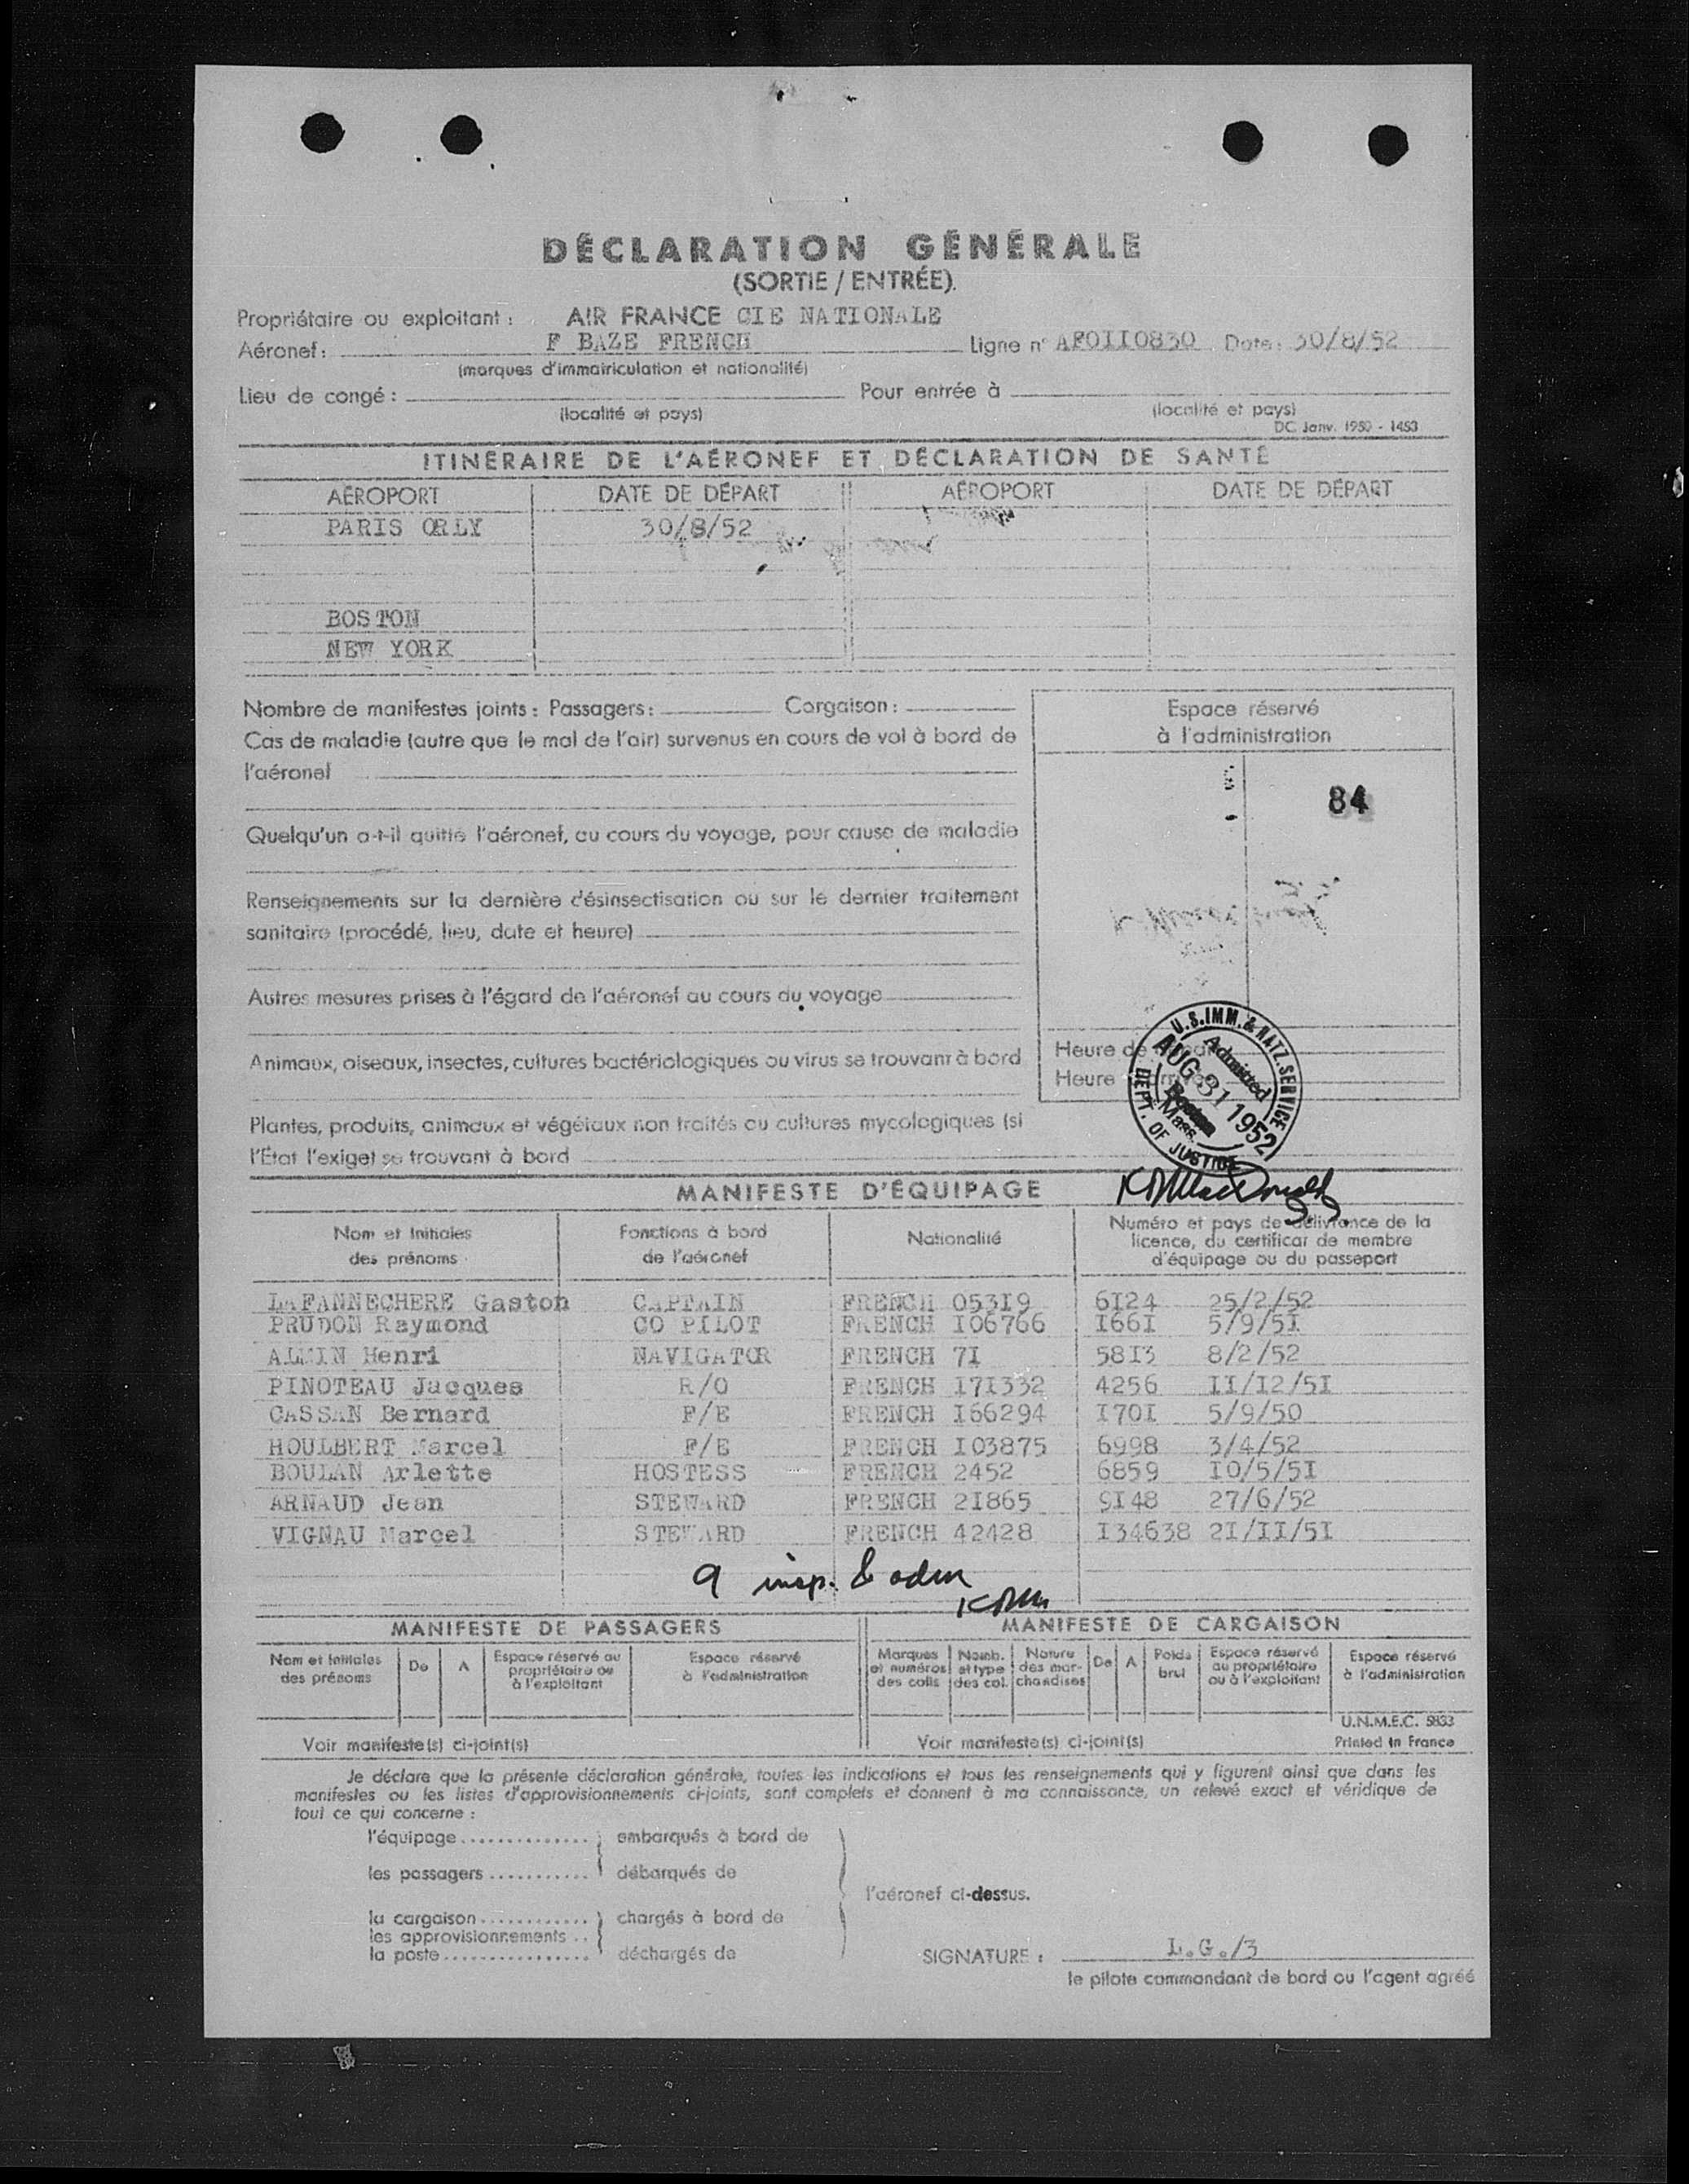 DÉCLARATION GÉNÉRALE
(SORTIE / ENTRÉE).
Propriétaire ou exploitant : AIR FRANCE CIE NATIONALE
Aéronef : F BAZE FRENCH Ligne n° AF0II0830 Date : 30/8/52
(marques d'immatriculation et nationalité)
Lieu de congé : Pour entrée à
(localité et pays) (localité et pays)
DC. Janv. 1950 - 1453
ITINÉRAIRE DE L'AÉRONEF ET DÉCLARATION DE SANTÉ
AÉROPORT DATE DE DÉPART AÉROPORT DATE DE DÉPART
PARIS ORLY 30/8/52
BOSTON
NEW YORK
Nombre de manifestes joints : Passagers : Cargaison :
Cas de maladie (autre que le mal de l'air) survenus en cours de vol à bord de
l'aéronef
Quelqu'un a-t-il quitté l'aéronef, au cours du voyage, pour cause de maladie
Renseignements sur la dernière désinsectisation ou sur le dernier traitement
sanitaire (procédé, lieu, date et heure)
Autres mesures prises à l'égard de l'aéronef au cours du voyage
Animaux, oiseaux, insectes, cultures bactériologiques ou virus se trouvant à bord
Plantes, produits, animaux et végétaux non traités ou cultures mycologiques (si
l'État l'exige) se trouvant à bord
Espace réservé
à l'administration
84
Heure de
Heure
U.S. IMM. & NATZ. SERVICE
Admitted
AUG 31 1952
Boston
Mass.
DEPT. OF JUSTICE
KDMacDonald
MANIFESTE D'ÉQUIPAGE
Nom et Initiales Fonctions à bord Nationalité Numéro et pays de délivrance de la
des prénoms de l'aéronef licence, du certificat de membre
d'équipage ou du passeport
LAFANNECHERE Gaston CAPTAIN FRENCH 053I9 6I24 25/2/52
PRUDON Raymond CO PILOT FRENCH I06766 I66I 5/9/5I
ALMIN Henri NAVIGATOR FRENCH 7I 58I3 8/2/52
PINOTEAU Jacques R/O FRENCH I7I332 4256 II/I2/5I
CASSAN Bernard F/E FRENCH I66294 I70I 5/9/50
HOULBERT Marcel F/E FRENCH I03875 6998 3/4/52
BOULAN Arlette HOSTESS FRENCH 2452 6859 I0/5/5I
ARNAUD Jean STEWARD FRENCH 2I865 9I48 27/6/52
VIGNAU Marcel STEWARD FRENCH 42428 I34638 2I/II/5I
9 insp. & adm
KDM
MANIFESTE DE PASSAGERS MANIFESTE DE CARGAISON
Nom et Initiales des prénoms De A Espace réservé au propriétaire ou à l'exploitant Espace réservé à l'administration
Marques et numéros des colis Nomb. et type des col. Nature des marchandises De A Poids brut Espace réservé au propriétaire ou à l'exploitant Espace réservé à l'administration
U.N.M.E.C. 5833
Voir manifeste(s) ci-joint(s) Voir manifeste(s) ci-joint(s) Printed in France
Je déclare que la présente déclaration générale, toutes les indications et tous les renseignements qui y figurent ainsi que dans les
manifestes ou les listes d'approvisionnements ci-joints, sont complets et donnent à ma connaissance, un relevé exact et véridique de
tout ce qui concerne :
l'équipage .............. embarqués à bord de
les passagers ........... débarqués de
l'aéronef ci-dessus.
la cargaison ............ chargés à bord de
les approvisionnements ..
la poste ................ déchargés de
SIGNATURE : L.G./3
le pilote commandant de bord ou l'agent agréé